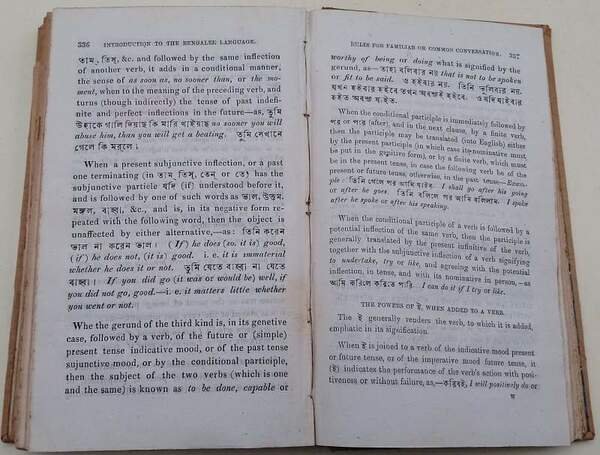 336 INTRODUCTION TO THE BENGALEE LANGUAGE.
তাম, তিস্, &c. and followed by the same inflection
of another verb, it adds in a conditional manner,
the sense of as soon as, no sooner than, or the mo-
ment, when to the meaning of the preceding verb, and
turus (though indirectly) the tense of past indefi-
nite and perfect inflections in the future—as, তুমি
উহাকে গালি দিয়াছ কি মারি খাইয়াছ no sooner you will
abuse him, than you will get a beating. তুমি সেখানে
গেলে কি মরলে।
When a present subjunctive inflection, or a past
one terminating (in তাম, তিস্, তেন্ or তে) has the
subjunctive particle যদি (if) understood before it,
and is followed by one of such words as ভাল, উত্তম,
মঙ্গল, বাহ্বা, &c., and is, in its negative form re-
peated with the following word, then the object is
unaffected by either alternative,—as: তিনি করেন
ভাল না করেন ভাল। (If) he does (so, it is) good,
(if) he does not, (it is) good. i. e. it is immaterial
whether he does it or not. তুমি যেতে বাহ্বা না যেতে
বাহ্বা। If you did go (it was or would be) well, if
you did not go, good.—i. e. it matters little whether
you went or not.
Whe the gerund of the third kind is, in its genetive
case, followed by a verb, of the future or (simple)
present tense indicative mood, or of the past tense
sujunctive mood, or by the conditional participle,
then the subject of the two verbs (which is one
and the same) is known as to be done, capable or
RULES FOR FAMILIAR OR COMMON CONVERSATION. 337
worthy of being or doing what is signified by the
gerund, as—তাহা বলিবার নয় that is not to be spoken
or fit to be said. ও হইবার নয়. তিনি ভুলিবার নয়.
যখন হইবার হইবে তখন অবশ্যই হইবে. ও যদি যাইবার
হইত অবশ্য যাইত.
When the conditional participle is immediately followed by
পর or পরে (after), and in the next clause, by a finite verb,
then the participle may be translated (into English) either
by the present participle (in which case its nominative must
be put in the genitive form), or by a finite verb, which must
be in the present tense, in case the following verb be of the
present or future tense, otherwise, in the past tense—Exam-
ple তিনি গেলে পর আমি যাইব. I shall go after his going
or after he goes. তিনি বলিলে পর আমি বলিলাম. I spoke
after he spoke or after his speaking.
When the conditional participle of a verb is followed by a
potential inflection of the same verb, then the participle is
generally translated by the present infinitive of the verb,
together with the subjunctive inflection of a verb signifying
to undertake, try or like, and agreeing with the potential
inflection, in tense, and with its nominative in person,—as
আমি করিলে করিতে পারি. I can do it if I try or like.
THE POWERS OF ই, WHEN ADDED TO A VERB.
The ই generally renders the verb, to which it is added,
emphatic in its signification.
When ই is joined to a verb of the indicative mood present
or future tense, or of the imperative mood future tense, it
(ই) indicates the performance of the verb's action with posi-
tiveness or without failure, as,—করিবই, I will positively do or